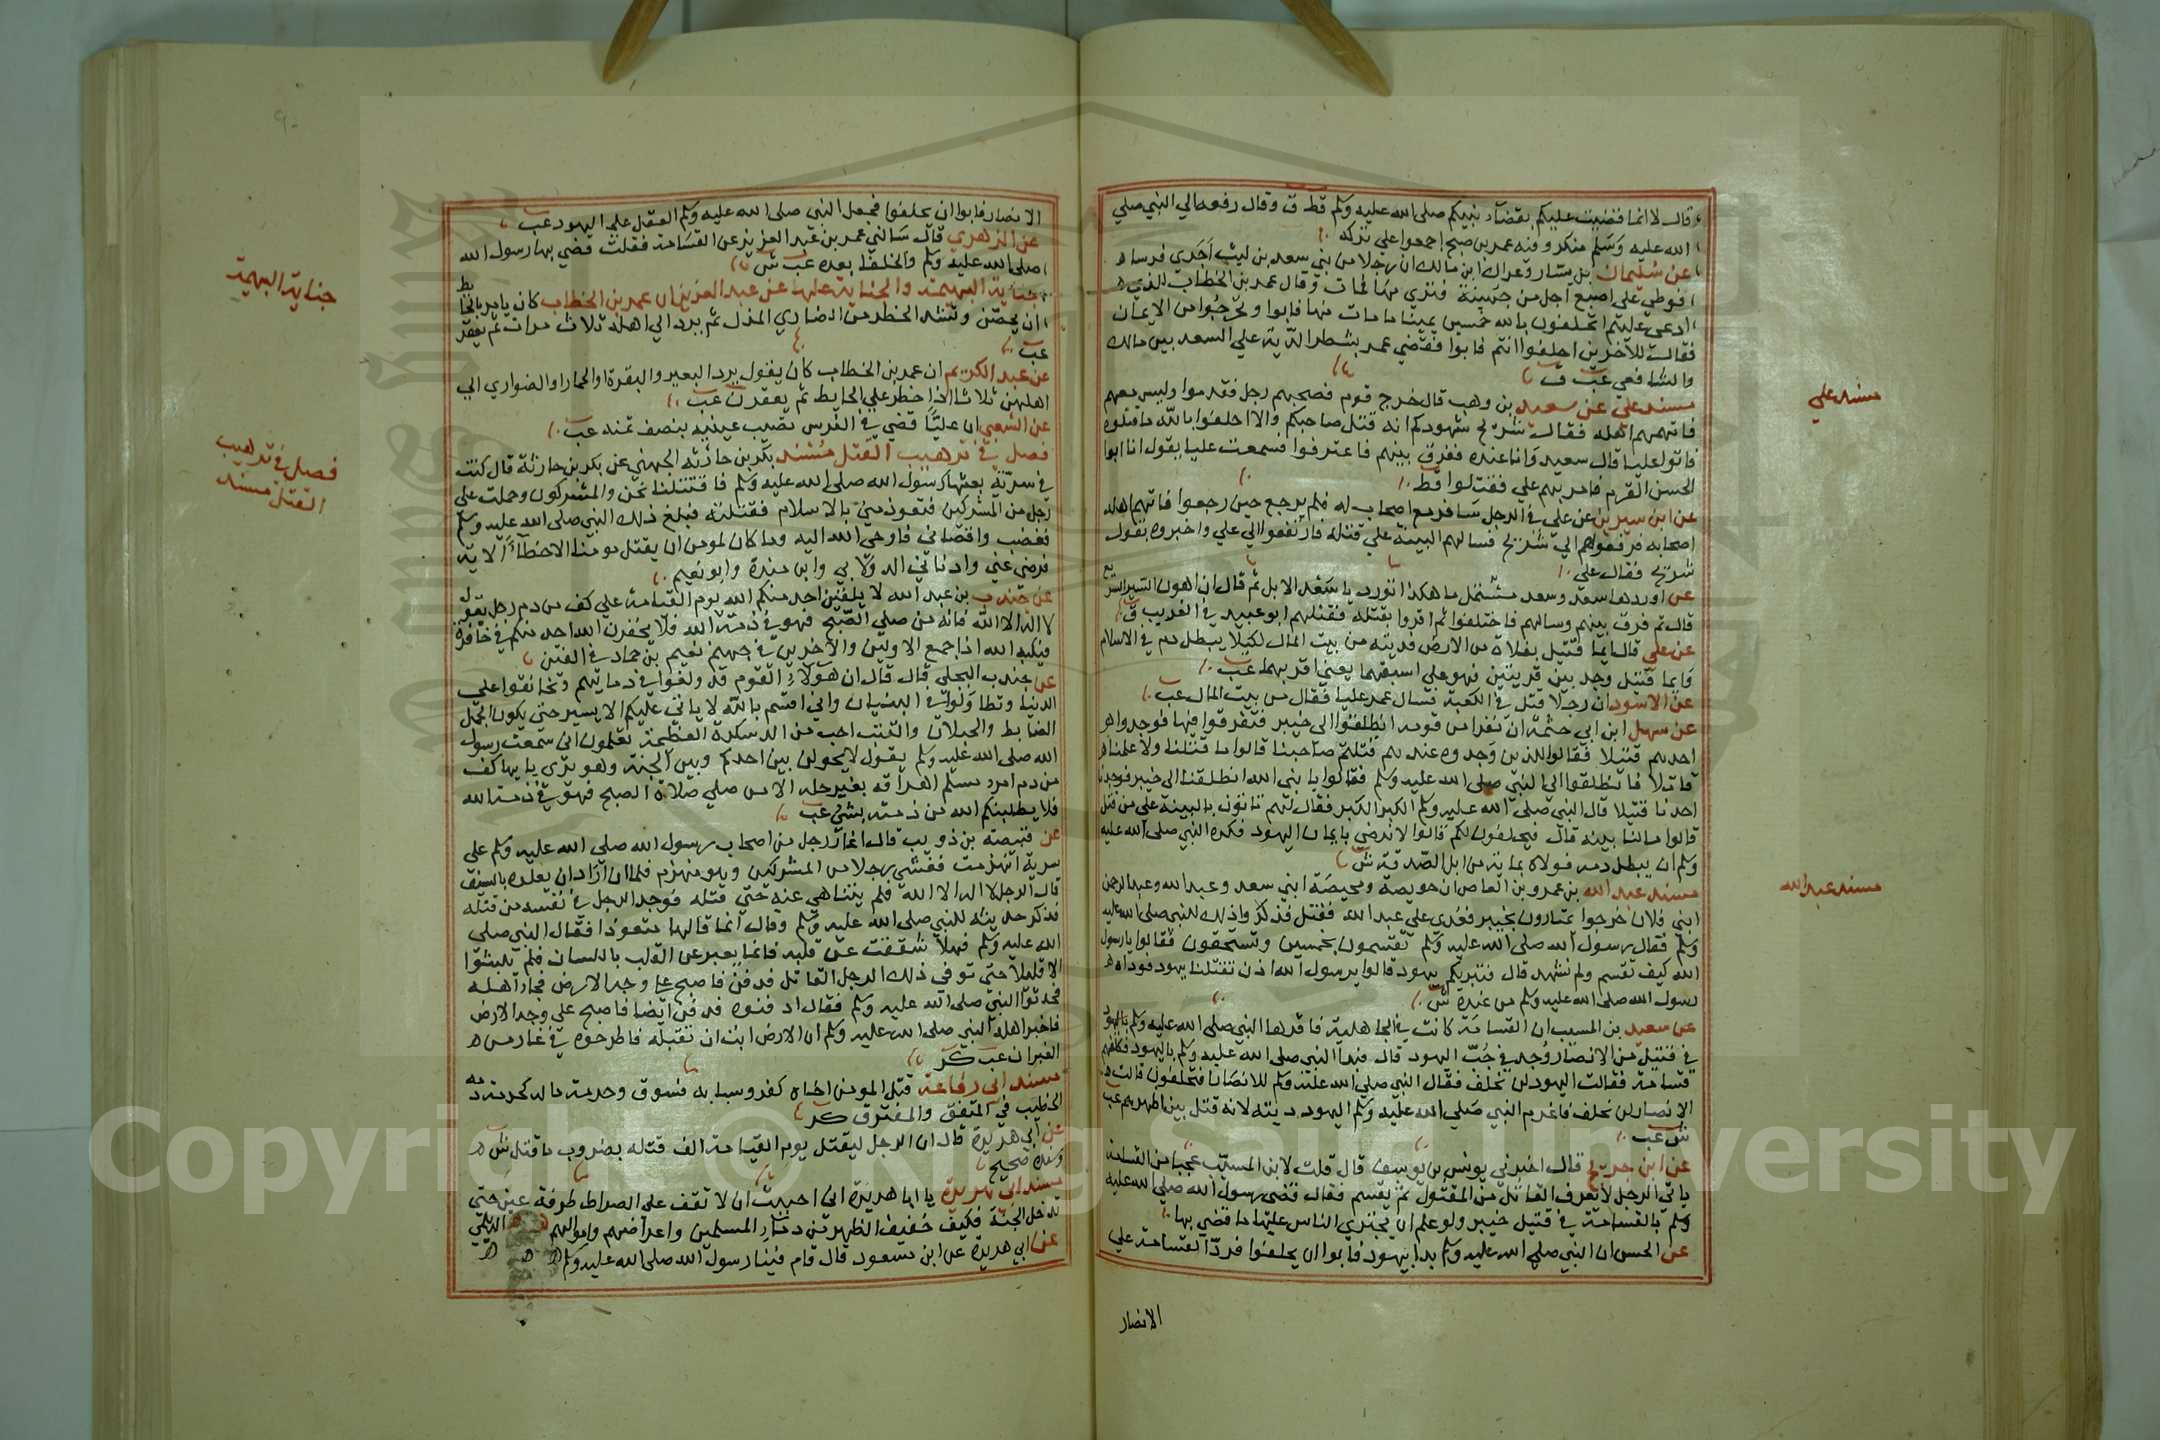 قال لا انما قضيت عليكم بقضاء نبيكم صلى الله عليه وسلم قط ق وقال رفعه الي النبي صلي
الله عليه وسلم منكر وفيه عمر بن صبح اجمعوا علي تركه
عن سليمان بن يسار وعراك ابن مالك ان رجلا من بني سعد بن ليث اجري فرسا
فوطي علي اصبع رجل من جهينة فنزي منها فمات وقال عمر بن الخطاب للذين
ادعي عليهم اتحلفون بالله خمسين يمينا ما مات منها فابوا وتحرجوا من الايمان
فقال للآخرين احلفوا انتم فابوا فقضي عمر بشطر الدية علي السعديين مالك
والشافعي عب ق
مسند علي عن سعيد بن وهب قال خرج قوم فصحبهم رجل فقدموا وليس معهم
فاتهمهم اهله فقال شريح شهودكم انه قتل صاحبكم والا احلفوا بالله ما قتلوه
فاتوا عليا قال سعيد وانا عنده ففرق بينهم فاعترفوا فسمعت عليا يقول انا ابو
الحسن القرم فامر بهم علي فقتلوا قط
عن ابن سيرين عن علي في الرجل سافر مع اصحاب له فلم يرجع حين رجعوا فاتهم اهله
اصحابه فرفعوهم الي شريح فسالهم البينة علي قتله فارتفعوا الي علي واخبروه بقول
شريح فقال علي
اوردها سعد وسعد مشتمل ما هكذا تورد يا سعد الابل ثم قال ان اهون السقي التشريع
قال ثم فرق بينهم وسالهم فاختلفوا ثم اقروا بقتله فقتلهم ابو عبيد في الغريب ق
عن علي قال ايما قتيل بفلاة من الارض فديته من بيت المال لكيلا يبطل دم في الاسلام
وايما قتيل وجد بين قريتين فهو علي اسبقهما يعني اقربهما عب
عن الاسود ان رجلا قتل في الكعبة فسال عمر عليا فقال من بيت المال عب
عن سهل ابن ابي حثمة ان نفرا من قومه انطلقوا الى خيبر فتفرقوا فيها فوجدوا
احدهم قتيلا فقالوا للذين وجدوه عندهم قتلتم صاحبنا قالوا ما قتلنا ولا علمنا
قاتلا فانطلقوا الى النبي صلى الله عليه وسلم فقالوا يا نبي الله انطلقنا الى خيبر فوجدنا
احدنا قتيلا قال النبي صلى الله عليه وسلم الكبر الكبر فقال لهم تاتون بالبينة علي من قتل
قالوا ما لنا بينه قال فيحلفون لكم قالوا لا نرضي بايمان اليهود فكره النبي صلى الله عليه
وسلم ان يبطل دمه فوداه بماية من ابل الصدقة ش
مسند عبد الله بن عمرو بن العاص ان حويصة ومحيصة ابني سعود وعبد الله وعبد الرحمن
ابني فلان خرجوا يمتارون بخيبر فعدي علي عبد الله فقتل فذكروا ذلك للنبي صلى الله عليه
وسلم فقال رسول الله صلى الله عليه وسلم تقتسمون بخمسين وتستحقون فقالوا يا رسول
الله كيف نقسم ولم نشهد قال فتبريكم يهود قالوا يرسول الله اذن تقتلنا يهود فوداه
رسول الله صلى الله عليه وسلم من عنده ش
عن سعيد بن المسيب ان القسامة كانت في الجاهلية فاقرها النبي صلى الله عليه وسلم
في قتيل من الانصار وجد في جب اليهود قال فبدأ النبي صلى الله عليه وسلم باليهود فكلفهم
قسامة فقالت اليهود لن نحلف فقال النبي صلى الله عليه وسلم للانصار افتحلفون قالت
الانصار لن نحلف فاغرم النبي صلى الله عليه وسلم اليهود ديته لانه قتل بين اظهرهم عب
ش عب
عن ابن جريج قال اخبرني يونس بن يوسف قال قلت لابن المسيب عجبا من القسامة
ياتي الرجل لا يعرف القاتل من المقتول ثم يقسم فقال قضى رسول الله صلى الله عليه
وسلم بالقسامة في قتيل خيبر ولو علم ان يجتري الناس عليها ما قضي بها
عن الحسن ان النبي صلى الله عليه وسلم بدا بيهود فابوا ان يحلفوا فرد القسامة علي
الانصار
مسند علي
مسند عبد الله
الانصار فابوا ان يحلفوا فجعل النبي صلى الله عليه وسلم العقل علي اليهود عب
عن الزهري قال سالني عمر بن عبد العزيز عن القسامة فقلت قضي بها رسول الله
صلى الله عليه وسلم والخلفا بعده عب ش
جناية البهيمة والجناية عليها عن عبد العزيز ان عمر بن الخطاب كان يامر بالحايط
ان يحصن وتشد الحظر من الضاري المذل ثم يرد الي اهله ثلاث مرات ثم يعقر
عب
عن عبد الكريم ان عمر بن الخطاب كان يقول يرد البعير والبقرة والحمار والضواري الي
اهلهن ثلاثا اذا حظر علي الحايط ثم يعقرن عب
عن الشعبي ان عليا قضي في الفرس تصيب عينيه بنصف ثمنه عب
فصل في ترهيب القتل مسند بكر بن حارثه الجهني عن بكر بن حارثة قال كنت
في سرية بعثها رسول الله صلى الله عليه وسلم فاقتتلنا نحن والمشركون وحملت علي
رجل من المشركين فتعوذ مني بالاسلام فقتلته فبلغ ذلك النبي صلى الله عليه وسلم
فغضب واقصاني فاوحي الله اليه وما كان لمومن ان يقتل مومنا الا خطأ الاية
فرضي عني وادناني الدولابي وابن مندة وابو نعيم
عن جندب بن عبد الله لا يلقين احد منكم الله يوم القيامة علي كف من دم رجل يقول
لا اله الا الله فانه من صلي الصبح فهو في ذمة الله فلا يخفرن الله احد منكم في خافرة
فيكبه الله اذا جمع الاولين والآخرين في جهنم نعيم بن حماد في الفتن
عن جندب البجلي قال قال ان هولاء القوم قد ولغوا في دمايهم وتحالفوا علي
الدنيا وتطاولوا في البنيان واني اقسم بالله لا ياتي عليكم الا يسير حتي يكون الجمل
الضابط والحبلان والقتب احب من الدسكرة العظيمة تعلمون اني سمعت رسول
الله صلى الله عليه وسلم يقول لا يحولن بين احدكم وبين الجنة وهو يري بابها كف
من دم امرء مسلم اهراقه بغير حله الا من صلي صلاة الصبح فهو في ذمة الله
فلا يطلبنكم الله من ذمته بشي عب
عن قبيصة بن ذويب قال اغار رجل من اصحاب رسول الله صلى الله عليه وسلم علي
سرية انهزمت فغشي رجلا من المشركين وهو منهزم فلما ان اراد ان يعلوه بالسيف
قال الرجل لا اله الا الله فلم يتناهى عنه حتي قتله فوجد الرجل في نفسه من قتله
فذكر حديثه للنبي صلى الله عليه وسلم وقال انما قالها متعوذا فقال النبي صلى
الله عليه وسلم فهلا شققت عن قلبه فانما يعبر عن القلب باللسان فلم يلبثوا
الا قليلا حتي توفي ذلك الرجل القاتل فدفن فاصبح علي وجه الارض فجاء اهله
فحدثوا النبي صلى الله عليه وسلم فقال ادفنوه فدفن ايضا فاصبح علي وجه الارض
فاخبر اهله النبي صلى الله عليه وسلم ان الارض ابت ان تقبله فاطرحوه في غار من
الغيران عب كر
مسند ابي رفاعة قتل المومن اخاه كفر وسبابه فسوق وحرمة ماله كحرمة دمه
الخطيب في المتفق والمفترق كر
عن ابي هريرة قال ان الرجل ليقتل يوم القيامة الف قتلة بضروب ما قتل ش
وسنده صحيح
مسند ابي هريرة يا ابا هريرة ان احببت ان لا تقف علي الصراط طرفة عين حتي
تدخل الجنة فكن خفيف الظهر من دماء المسلمين واعراضهم واموالهم الديلمي
عن ابي هريرة عن ابن مسعود قال قام فينا رسول الله صلى الله عليه وسلم
جناية البهيمة
فصل في ترهيب
القتل مسند
٩٠
Copyright © King Saud University